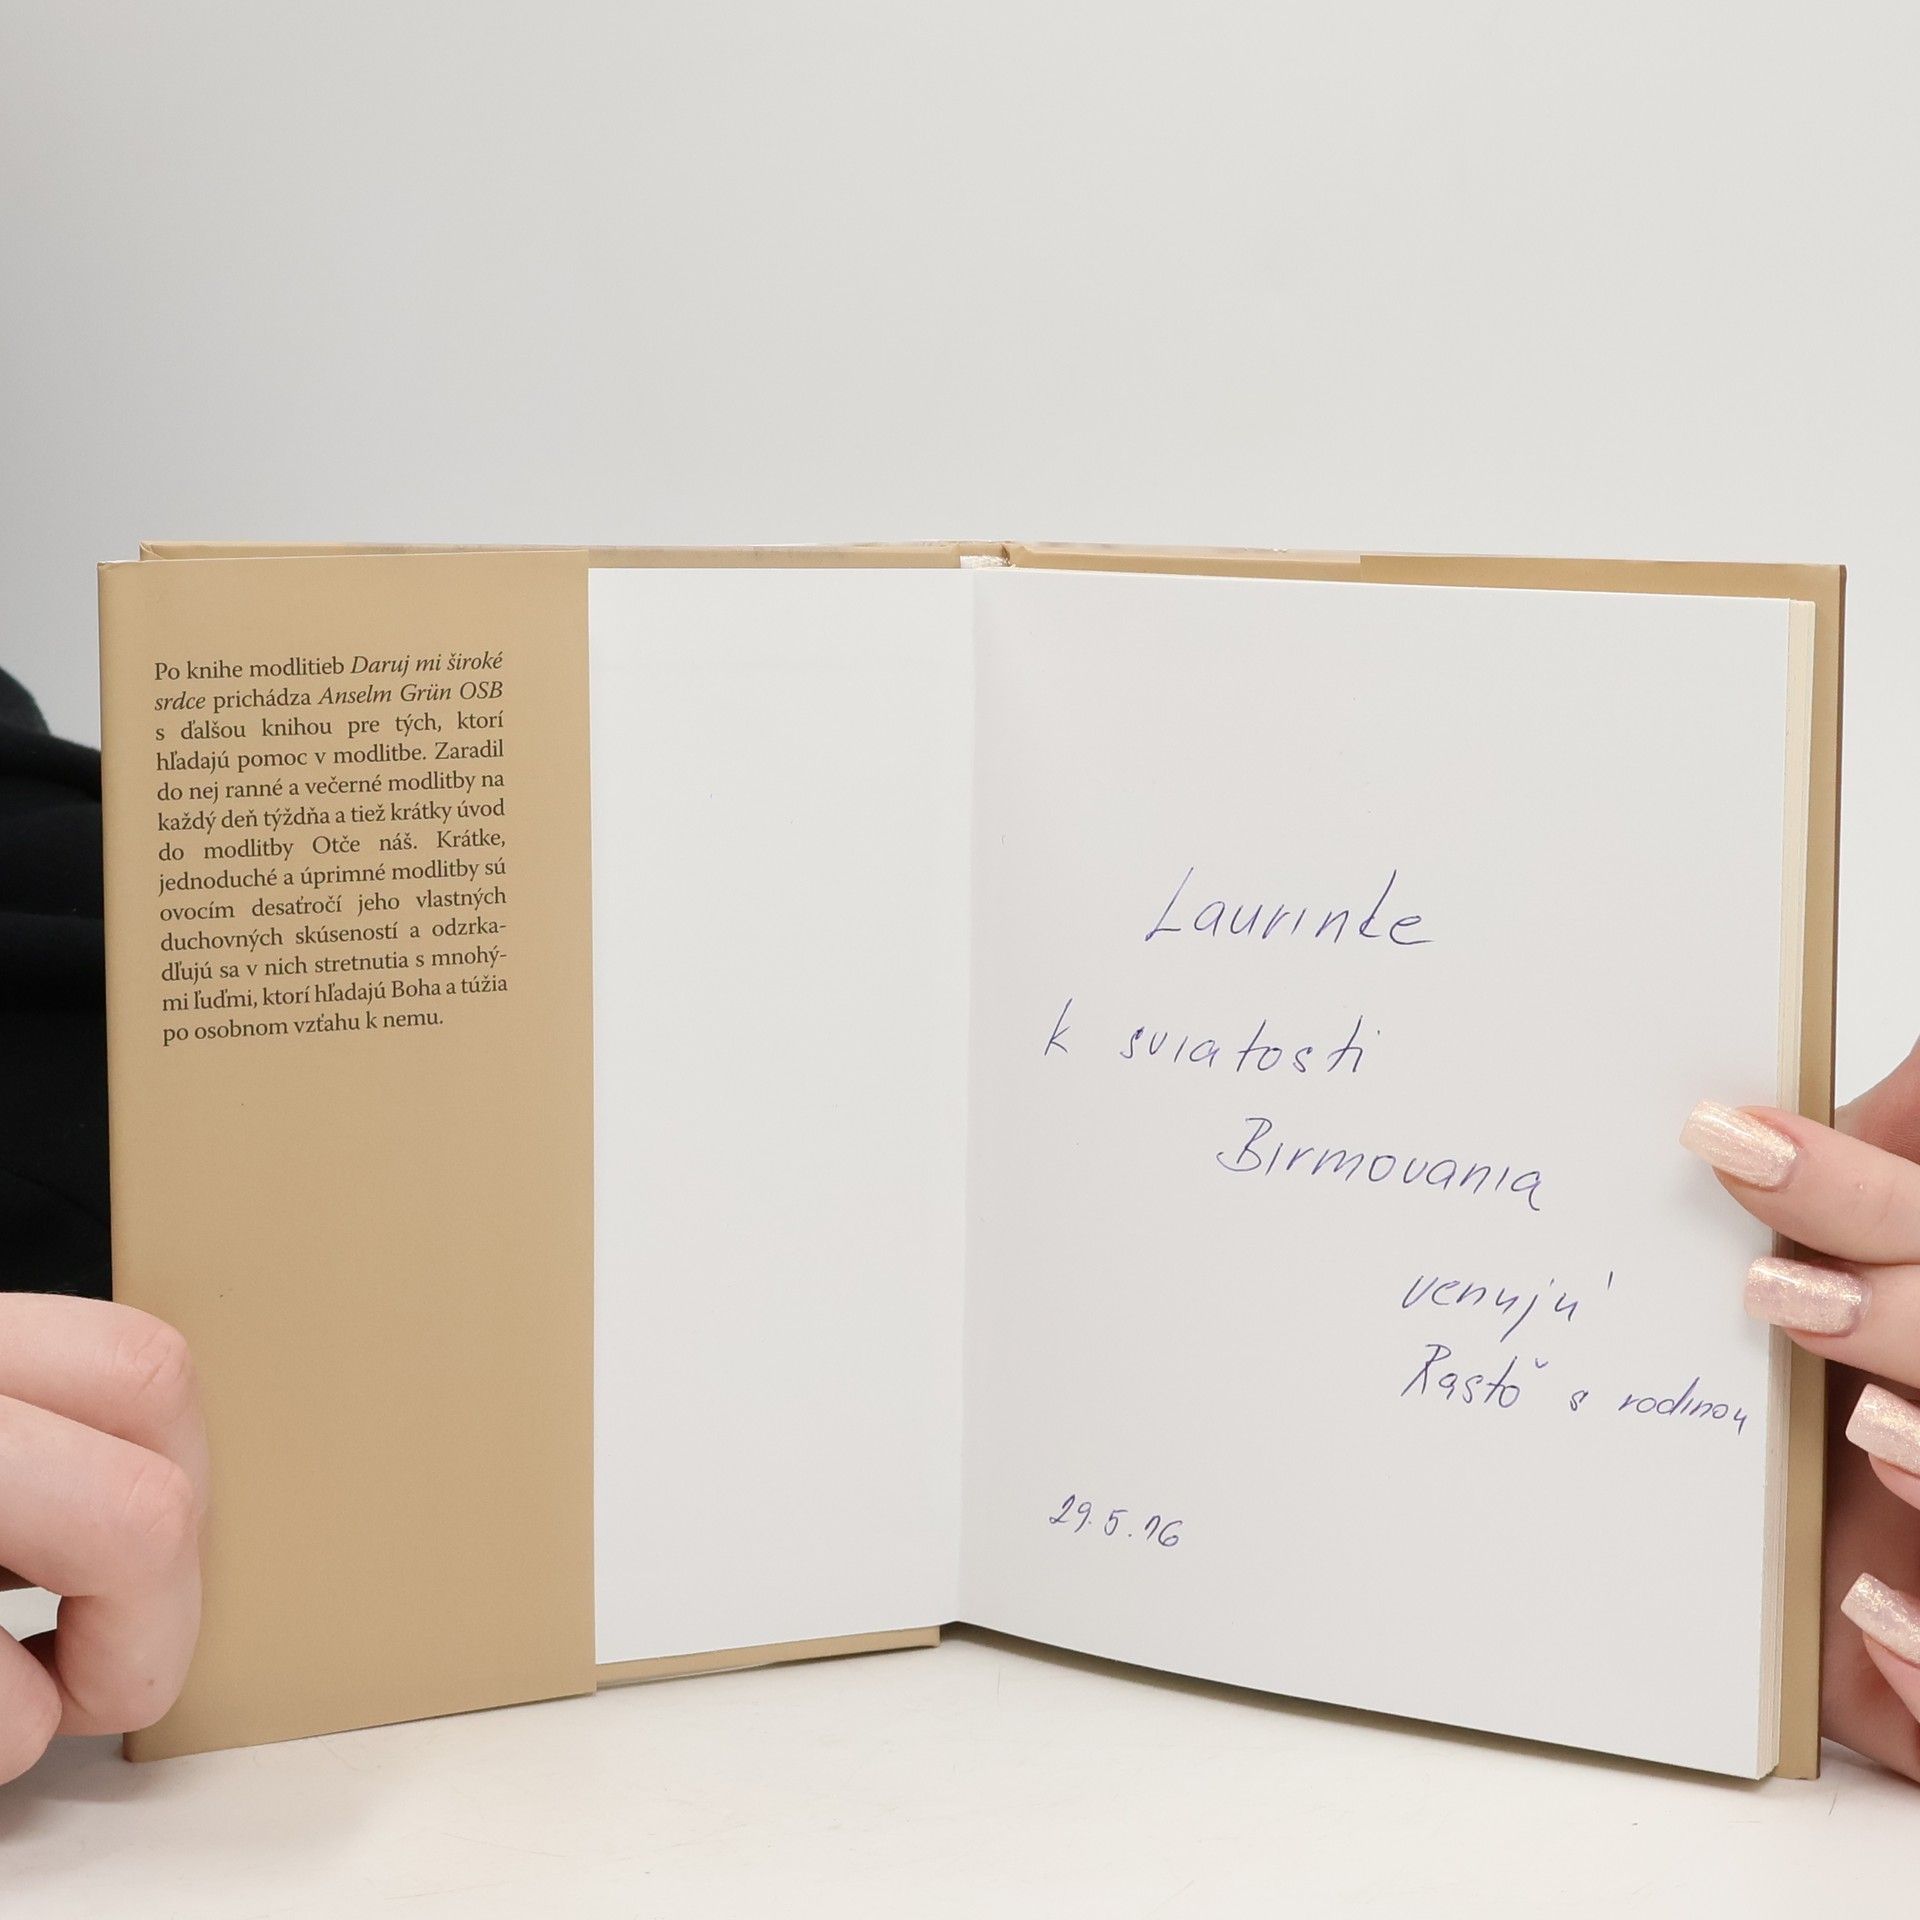 Po knihe modlitieb Daruj mi široké
srdce prichádza Anselm Grün OSB
s ďalšou knihou pre tých, ktorí
hľadajú pomoc v modlitbe. Zaradil
do nej ranné a večerné modlitby na
každý deň týždňa a tiež krátky úvod
do modlitby Otče náš. Krátke,
jednoduché a úprimné modlitby sú
ovocím desaťročí jeho vlastných
duchovných skúseností a odzrka-
dľujú sa v nich stretnutia s mnohý-
mi ľuďmi, ktorí hľadajú Boha a túžia
po osobnom vzťahu k nemu.
Laurinke
k sviatosti
Birmovania
venujú
Rasťo s rodinou
29.5.16